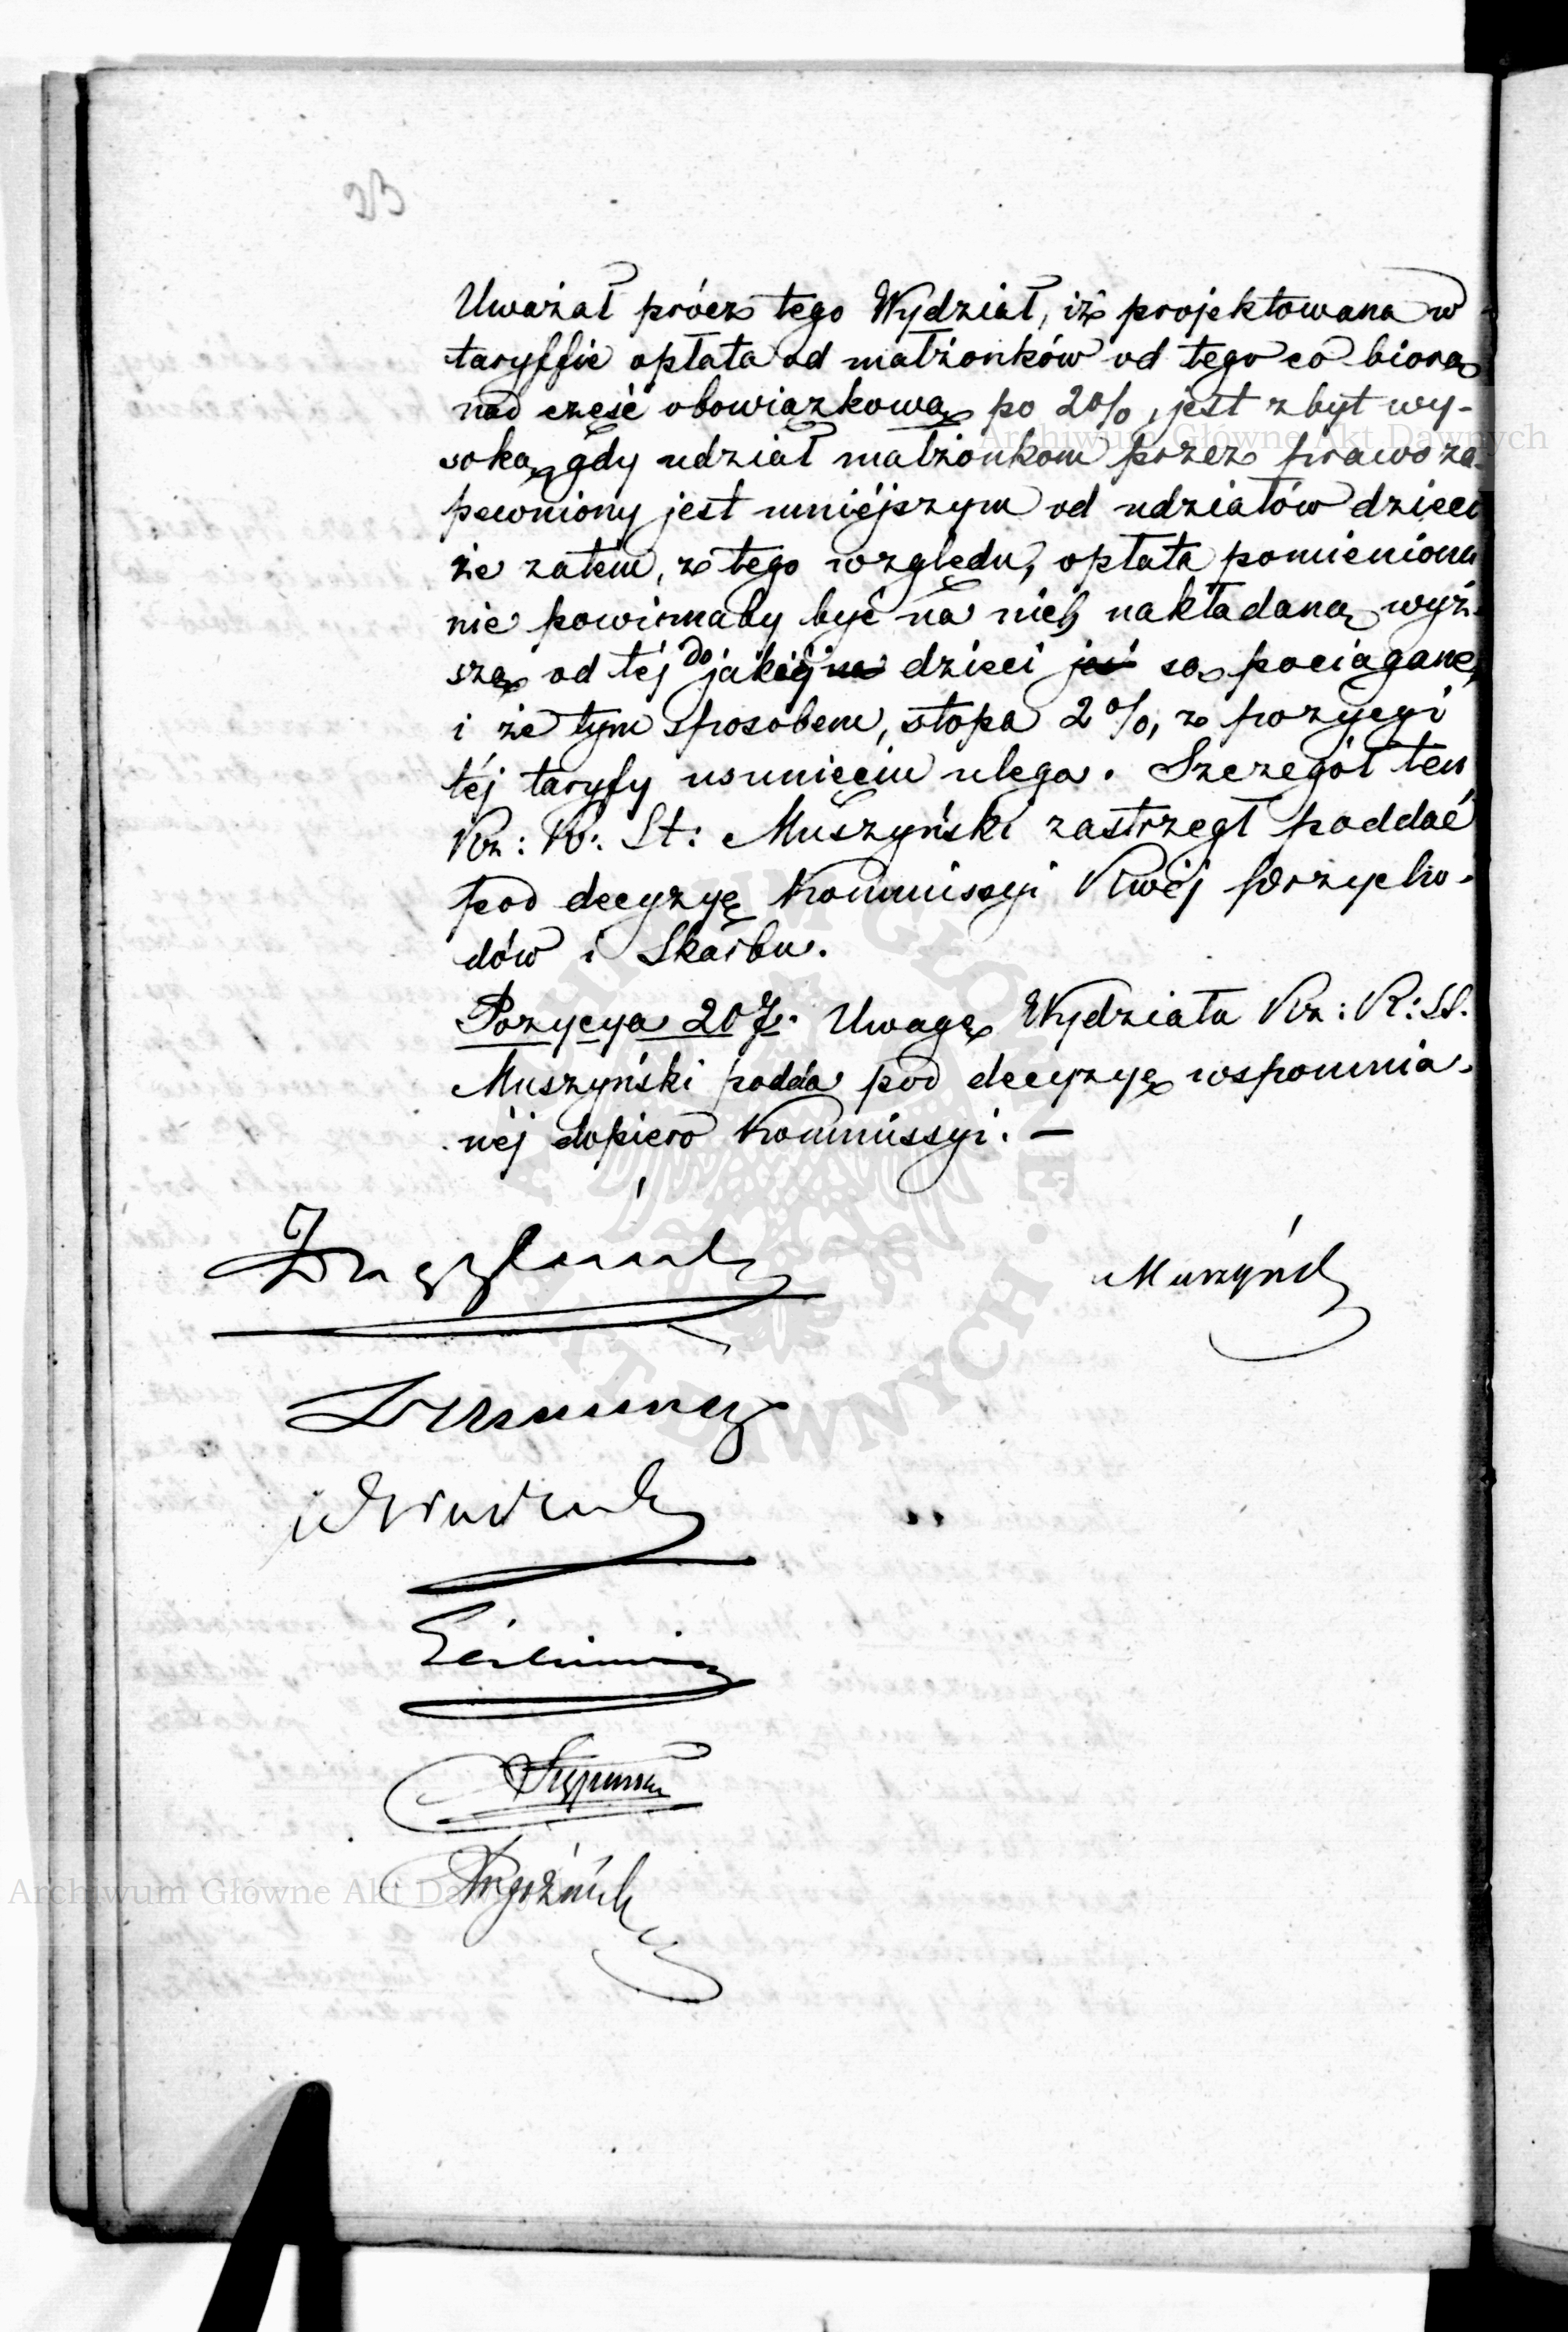 23
Uważał prócz tego Wydział, iż projektowana w
taryffie opłata od małżonków od tego co biorą
nad część obowiązkową po 2%, jest zbyt wy-
soką, gdy udział małżonkom przez prawo za-
pewniony jest mniéjszym od udziałów dzieci
że zatém, z tego względu, opłata pomieniona
nie powinnaby być na nich nakładaną wyż-
szą od téj do jakiéj dzieci są pociągane,
i że tym sposobem, stopa 2%, z pozycyi
téj taryfy usunięciu ulega. Szczegół ten
Rz: R: St: Muszyński zastrzegł poddać
pod decyzyę Kommissyi Rwéj Przycho-
dów i Skarbu.
Pozycya 207. Uwagę Wydziału Rz: R: St.
Muszyński podda pod decyzyę wspomnia-
néj dopiero Kommissyi. —
Muszyński
Archiwum Główne Akt Dawnych
Archiwum Główne Akt Dawnych
ARCHIWUM GŁÓWNE AKT DAWNYCH